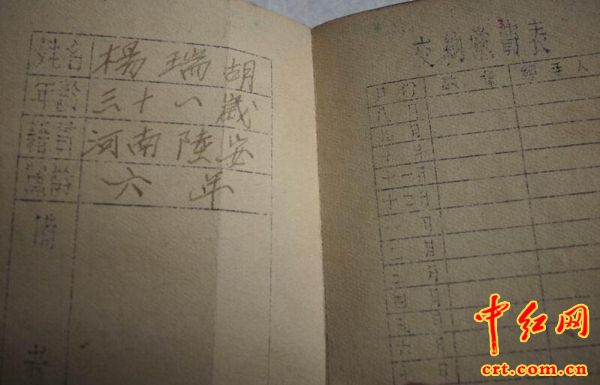 姓名 楊瑞胡
年齡 三十八歲
籍貫 河南陸安
六年
備
交納黨費表
月份 數量 經手人
八月
九月
十月
十一月
十二月
一月
二月
三月
四月
五月
六月
中红网
crt.com.cn